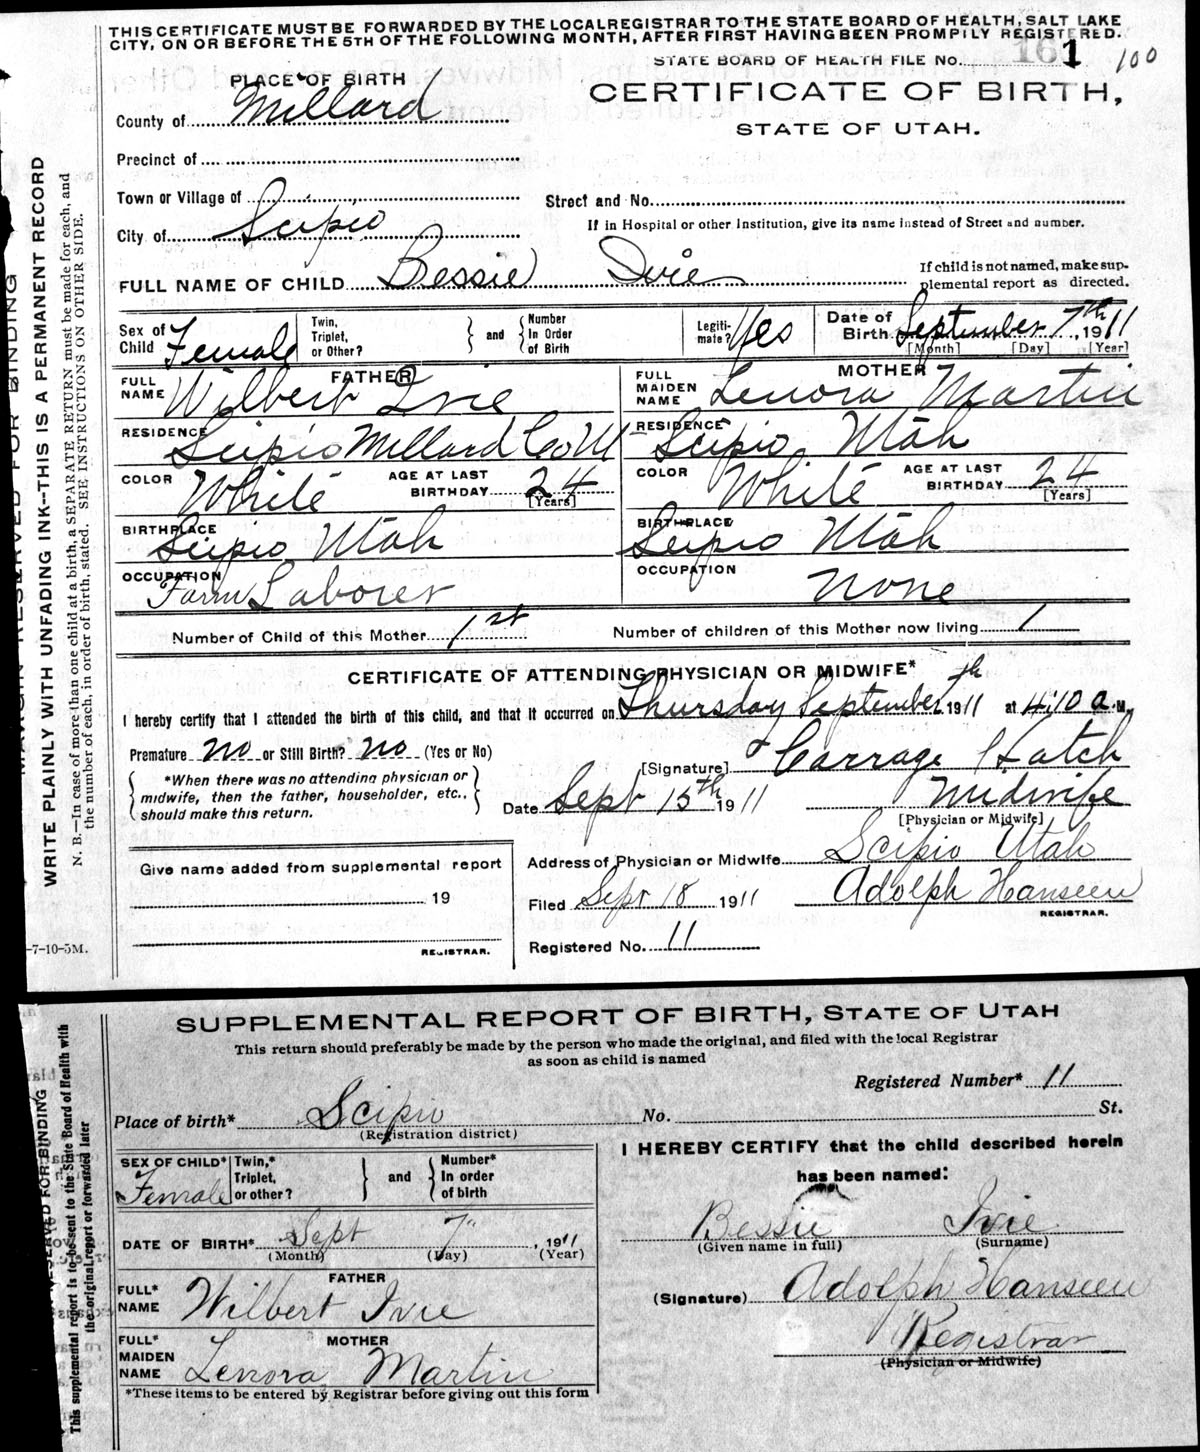 THIS CERTIFICATE MUST BE FORWARDED BY THE LOCAL REGISTRAR TO THE STATE BOARD OF HEALTH, SALT LAKE
CITY, ON OR BEFORE THE 5TH OF THE FOLLOWING MONTH, AFTER FIRST HAVING BEEN PROMPILY REGISTERED.
STATE BOARD OF HEALTH FILE NO. 161 100
PLACE OF BIRTH
CERTIFICATE OF BIRTH,
STATE OF UTAH.
County of Millard
Precinct of
Town or Village of
Street and No.
City of Scipio
If in Hospital or other Institution, give its name instead of Street and number.
FULL NAME OF CHILD Bessie Ivie
If child is not named, make sup-
plemental report as directed.
Sex of Child Female
Twin, Triplet, or Other?
and
Number In Order of Birth
Legiti- mate? Yes
Date of Birth September 7th, 1911
[Month] [Day] [Year]
FATHER
FULL NAME Wilbert Ivie
RESIDENCE Scipio Millard Co U
COLOR White
AGE AT LAST BIRTHDAY 24
[Years]
BIRTHPLACE Scipio Utah
OCCUPATION Farm Laborer
MOTHER
FULL MAIDEN NAME Lenora Martin
RESIDENCE Scipio Utah
COLOR White
AGE AT LAST BIRTHDAY 24
[Years]
BIRTHPLACE Scipio Utah
OCCUPATION None
Number of Child of this Mother 1st
Number of children of this Mother now living 1
CERTIFICATE OF ATTENDING PHYSICIAN OR MIDWIFE*
I hereby certify that I attended the birth of this child, and that it occurred on Thursday September 7th 1911 at 4:10 a. M.
Premature no or Still Birth? no (Yes or No)
[Signature] Carrage Hatch
*When there was no attending physician or
midwife, then the father, householder, etc.,
should make this return.
Date Sept 15th 1911
Midwife
[Physician or Midwife]
Give name added from supplemental report
19
REGISTRAR.
Address of Physician or Midwife Scipio Utah
Filed Sept 18 1911
Adolph Hanseen
REGISTRAR.
Registered No. 11
-7-10-5M.
MARGIN RESERVED FOR BINDING
WRITE PLAINLY WITH UNFADING INK--THIS IS A PERMANENT RECORD
N. B.—In case of more than one child at a birth, a SEPARATE RETURN must be made for each, and
the number of each, in order of birth, stated. SEE INSTRUCTIONS ON OTHER SIDE.
SUPPLEMENTAL REPORT OF BIRTH, STATE OF UTAH
This return should preferably be made by the person who made the original, and filed with the local Registrar
as soon as child is named
Registered Number* 11
Place of birth* Scipio No. St.
(Registration district)
SEX OF CHILD* Female
Twin,* Triplet, or other?
and
Number* In order of birth
DATE OF BIRTH* Sept 7", 1911
(Month) (Day) (Year)
FATHER
FULL* NAME Wilbert Ivie
MOTHER
FULL* MAIDEN NAME Lenora Martin
*These items to be entered by Registrar before giving out this form
I HEREBY CERTIFY that the child described herein
has been named:
Bessie Ivie
(Given name in full) (Surname)
(Signature) Adolph Hanseen
Registrar
(Physician or Midwife)
RESERVED FOR BINDING
This supplemental report is to be sent to the State Board of Health with
the original report or forwarded later